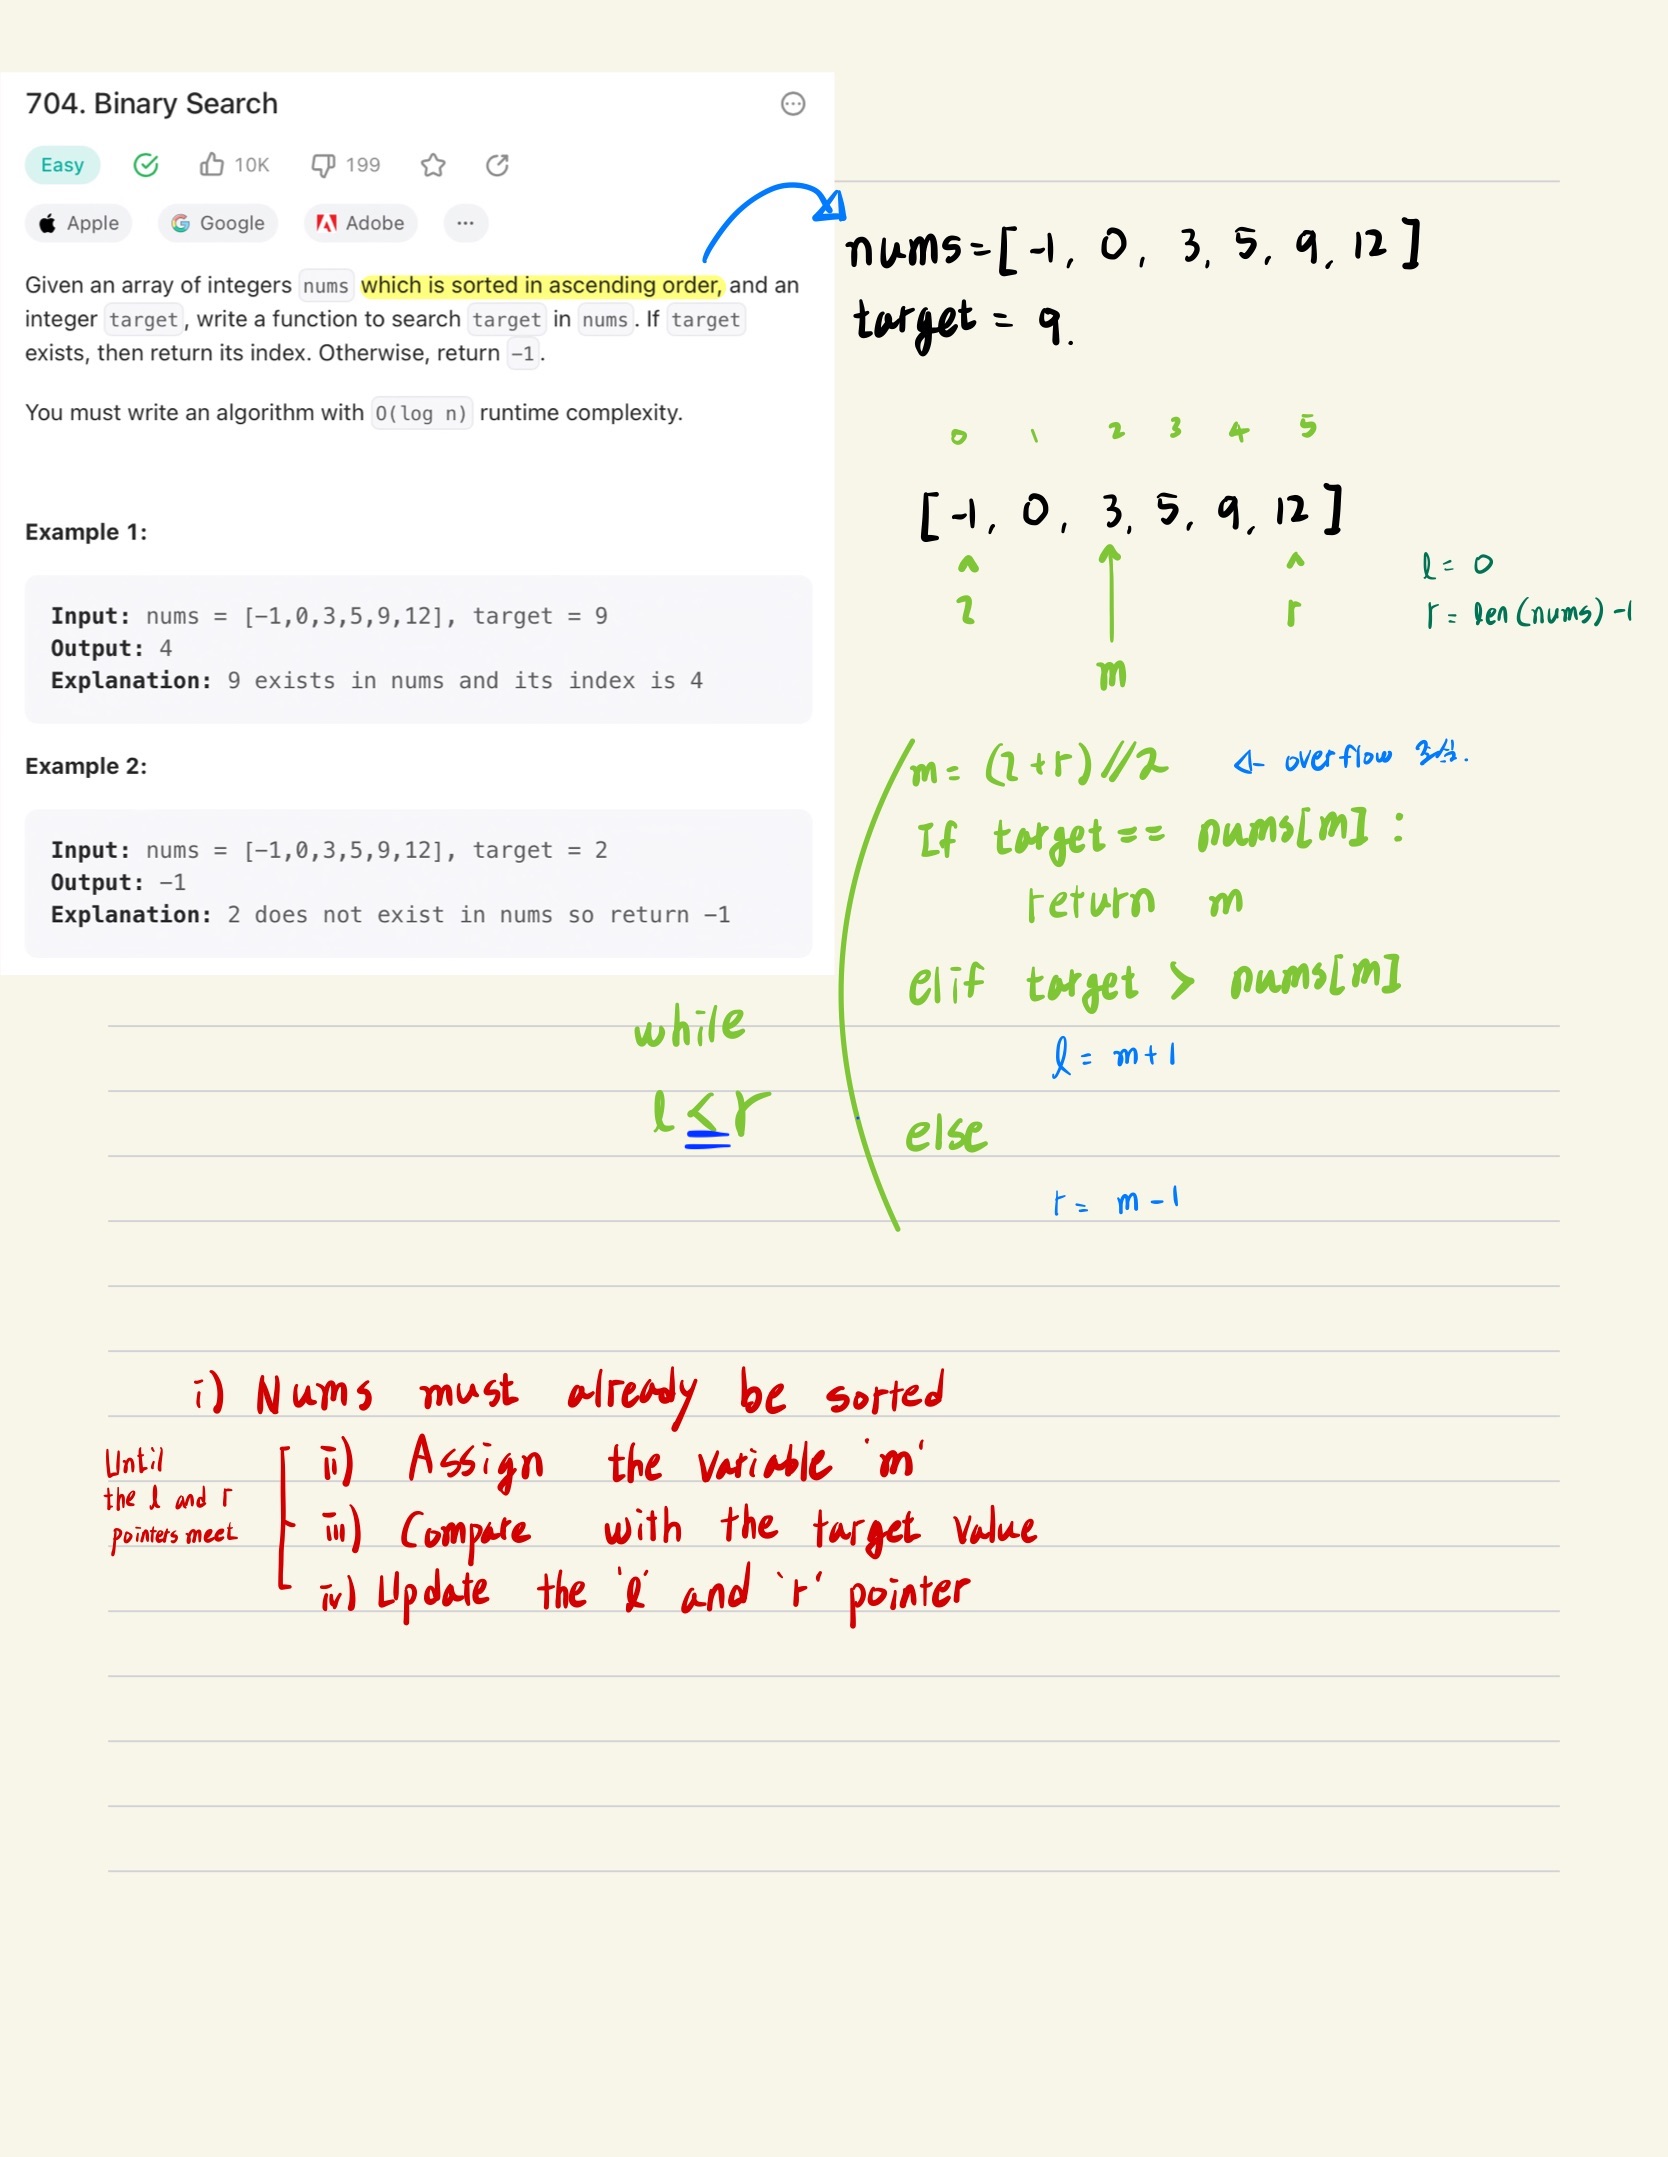 704. Binary Search
Easy 10K 199
Apple Google Adobe ...
Given an array of integers nums which is sorted in ascending order, and an
integer target, write a function to search target in nums. If target
exists, then return its index. Otherwise, return -1.
You must write an algorithm with O(log n) runtime complexity.
Example 1:
Input: nums = [-1,0,3,5,9,12], target = 9
Output: 4
Explanation: 9 exists in nums and its index is 4
Example 2:
Input: nums = [-1,0,3,5,9,12], target = 2
Output: -1
Explanation: 2 does not exist in nums so return -1
nums=[-1, 0, 3, 5, 9, 12]
target = 9.
0 1 2 3 4 5
[-1, 0, 3, 5, 9, 12]
l r
m
l = 0
r = len(nums)-1
m = (l+r)//2
overflow
If target == nums[m] :
return m
elif target > nums[m]
l = m+1
else
r = m-1
while
l ≤ r
i) Nums must already be sorted
ii) Assign the variable 'm'
iii) Compare with the target value
iv) Update the 'l' and 'r' pointer
Until
the l and r
pointers meet